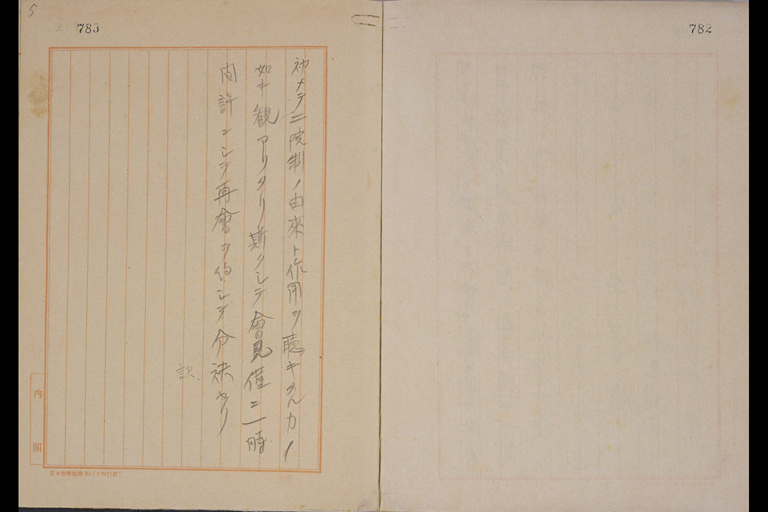 782
初メテ二院制ノ由来ト作用ヲ聴キタルカノ
如キ観アリタリ斯クシテ會見僅ニ一時
間許ニシテ再會ヲ約シテ分袂セリ
783
5
内閣